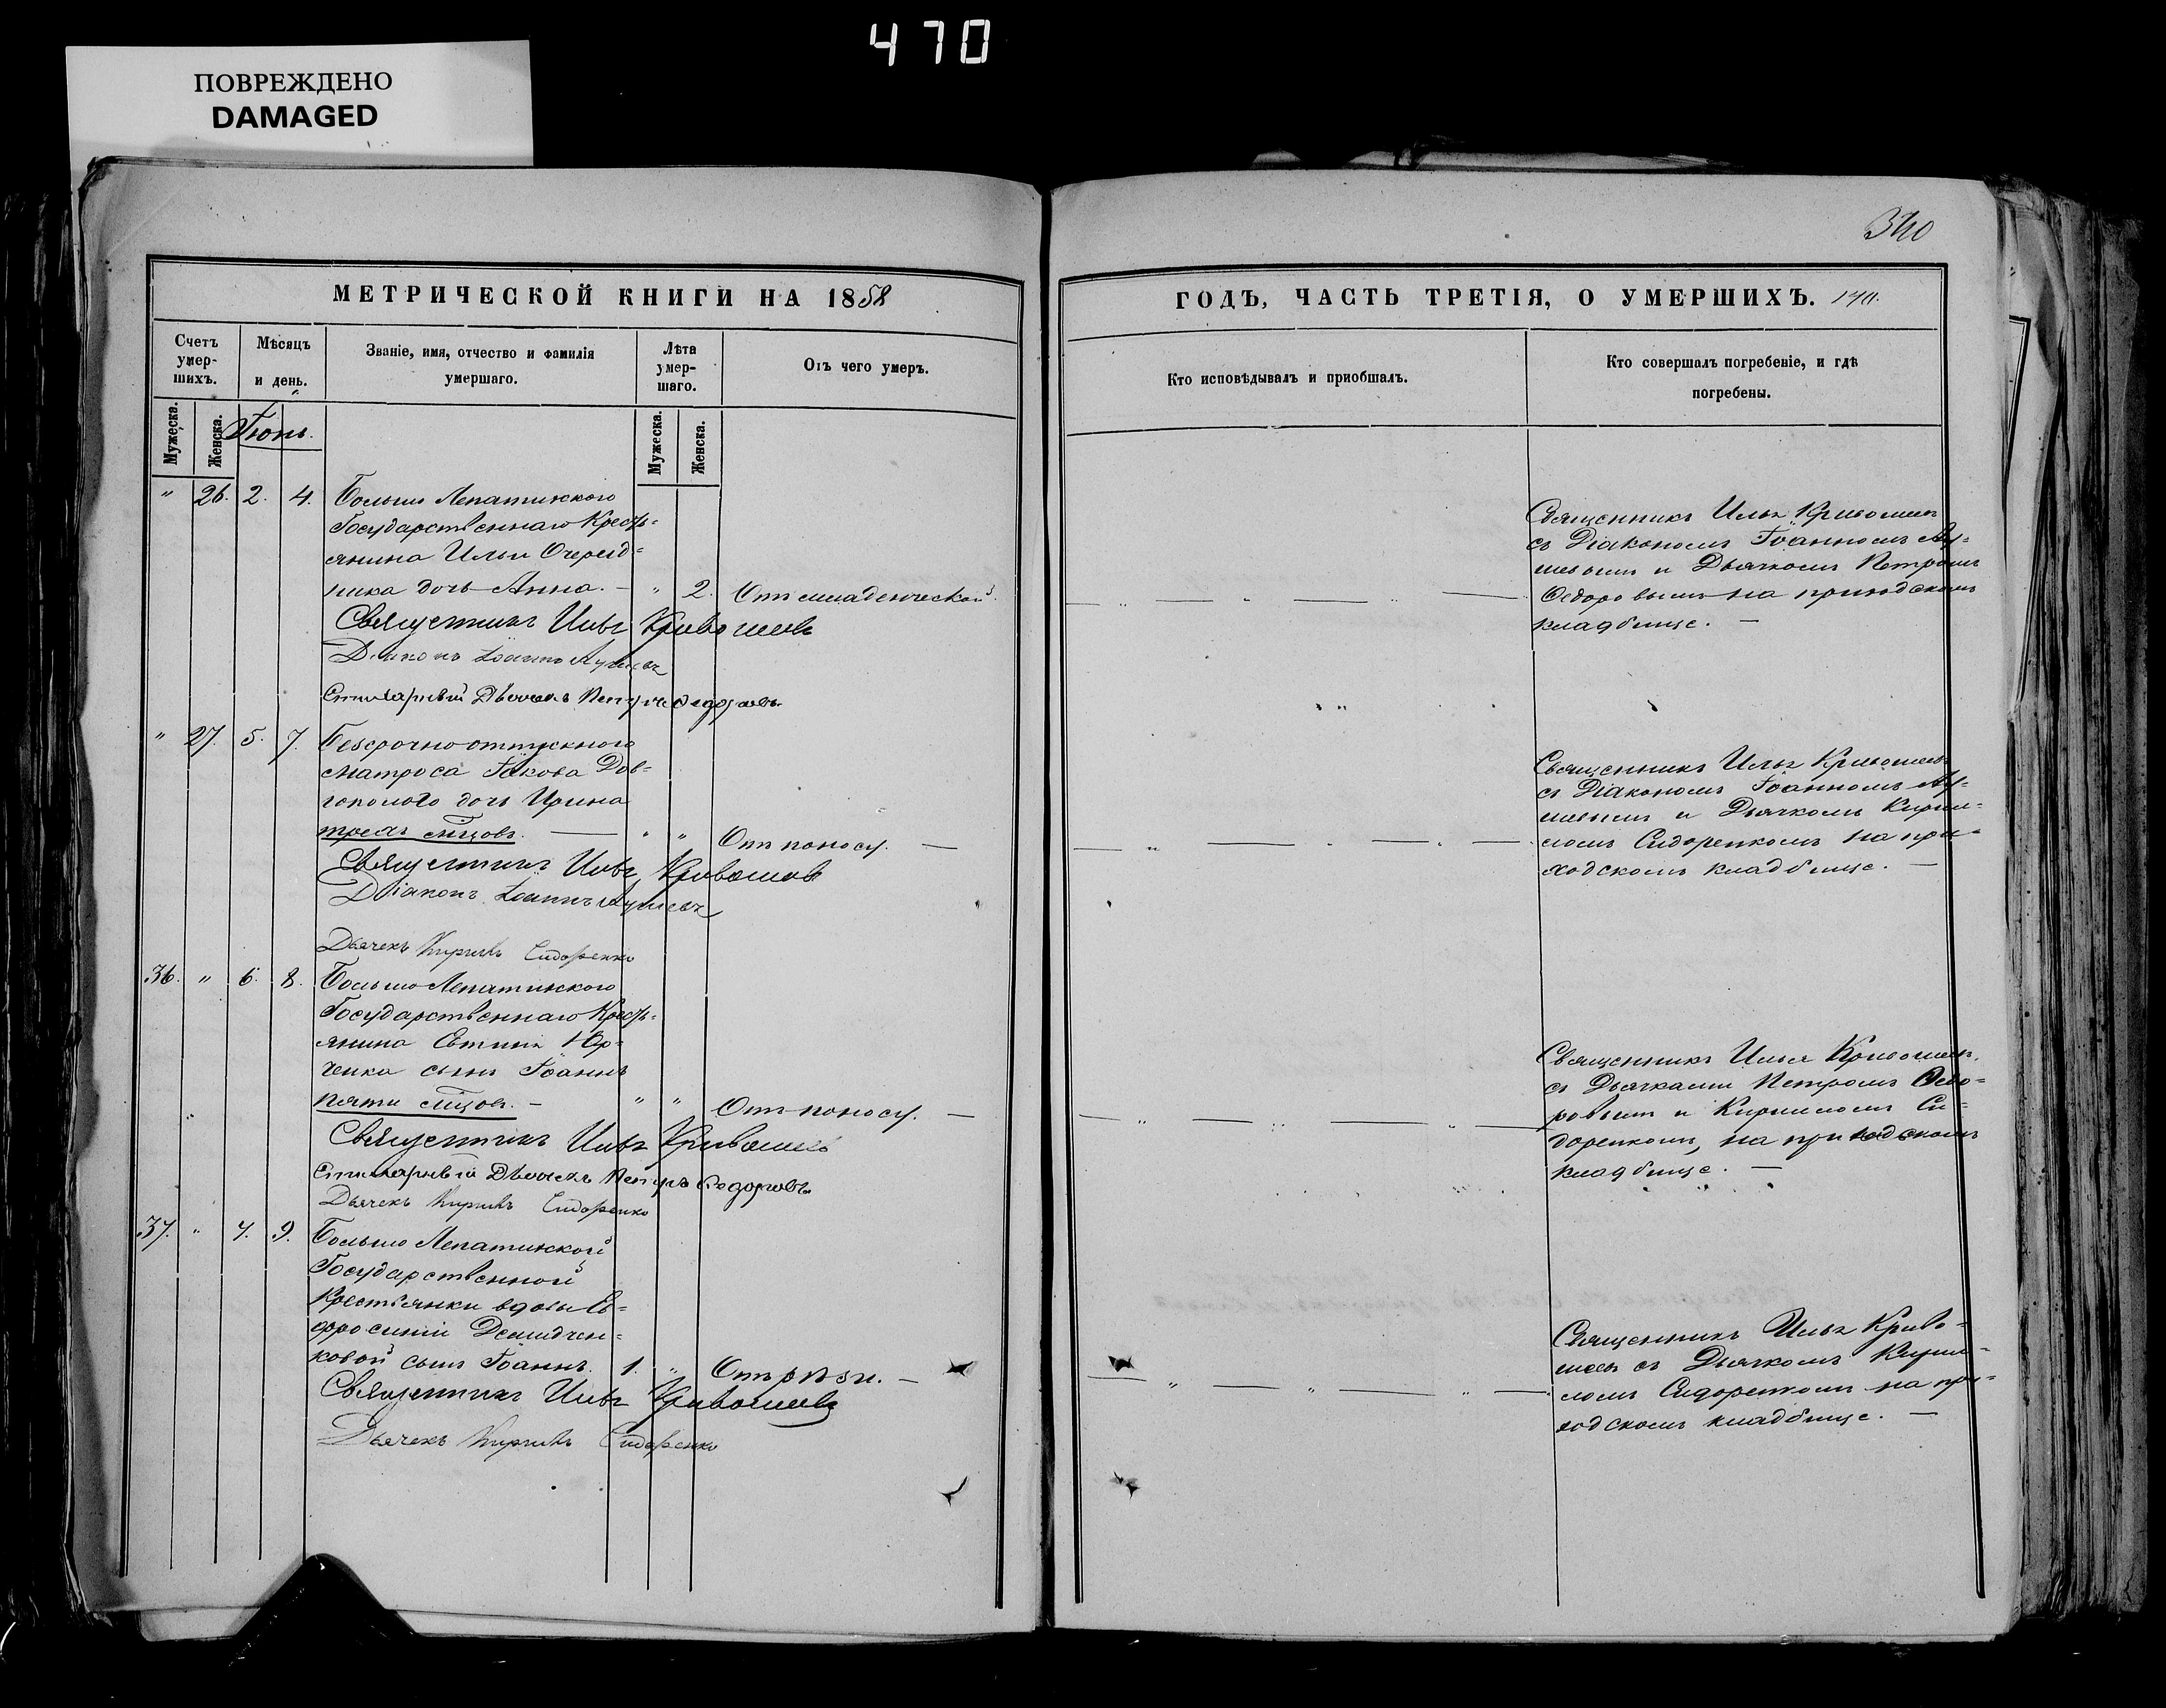 470
ПОВРЕЖДЕНО
DAMAGED
340
МЕТРИЧЕСКОЙ КНИГИ НА 1858
ГОДЪ, ЧАСТЬ ТРЕТІЯ, О УМЕРШИХЪ.
Счетъ умер-шихъ.
Мѣсяцъ и день.
Званіе, имя, отчество и фамилія умершаго.
Лѣта умер-шаго.
Отъ чего умеръ.
Кто исповѣдывалъ и пріобщалъ.
Кто совершалъ погребеніе, и гдѣ погребены.
Мужеска.
Женска.
Іюнь.
Мужеска.
Женска.
" 26. 2. 4. Больше Лепатижского
Государственнаго Кресть-
янина Ильи Очеред-
ника дочь Анна. — " 2. Отъ младенческой.
Священникъ Илья Кривошеевъ
Діаконъ Іоаннъ
Стихарный Дьячекъ Петръ Федоровъ
Священникъ Илья Кривошеевъ
съ Діакономъ Іоанномъ
и Дьячкомъ Петромъ
Федоровымъ на приходскомъ
кладбище. —
" 27. 5. 7. Безсрочно отпускного
матроса Іакова Дов-
гополого дочь Ирина
трехъ мѣсяцовъ. — " " Отъ поносу. —
Священникъ Илья Кривошеевъ
Діаконъ Іоаннъ
Дьячекъ Кирилъ Сидоренко
Священникъ Илья Кривошеевъ
съ Діакономъ Іоанномъ
и Дьячкомъ Кирил-
ломъ Сидоренкомъ на при-
ходскомъ кладбище. —
36. " 6. 8. Больше Лепатижского
Государственнаго Кресть-
янина Евтихія Юр-
ченка сынъ Іоаннъ
пяти мѣсяцовъ. — " " Отъ поносу. —
Священникъ Илья Кривошеевъ
Стихарный Дьячекъ Петръ Федоровъ
Дьячекъ Кирилъ Сидоренко
Священникъ Илья Кривошеевъ
съ Дьячками Петромъ Федо-
ровымъ и Кирилломъ Си-
доренкомъ, на приходскомъ
кладбище. —
37. " 7. 9. Больше Лепатижской
Государственной
Крестьянки вдовы Ев-
фросиніи Демидчен-
ковой сынъ Іоаннъ. 1. " Отъ рѣзи. —
Священникъ Илья Кривошеевъ
Дьячекъ Кирилъ Сидоренко
Священникъ Илья Криво-
шеевъ съ Дьячкомъ Кирил-
ломъ Сидоренкомъ на при-
ходскомъ кладбище. —